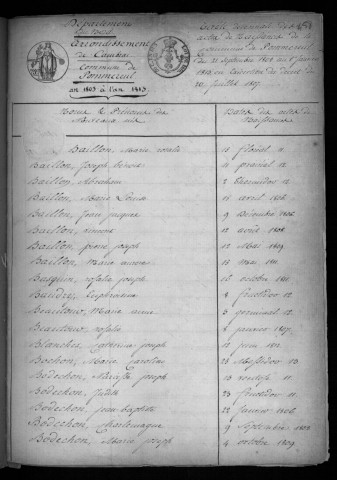 Département
du nord
Arrondissement
de Cambrai
Commune de
Pommereuil
an 1803 à l'an 1813
Table décennale des
actes de Naissance de la
commune de Pommereuil
du 21 Septembre 1802 au 1er janvier
1813 en exécution du Décret du
20 juillet 1807
Noms & Prénoms des
Nouveaux nés
Dates des actes de
Naissance
Baillon, Marie rosalie 11 floréal 11
Baillon, Joseph benoit 11 prairial 12
Baillon, Abraham 2 thermidor 12
Baillon, Marie Louise 15 avril 1806
Baillon, Jean jacques 9 Décembre 1806
Baillon, 12 août 1808
Baillon, pierre joseph 12 Mai 1809
Baillon, Marie 15 mai 1811
Basquin, rosalie joseph 16 octobre 1811
Baudry, Euphrosine 4 fructidor 12
Beautour, Marie anne 3 germinal 12
Beautour, rosalie 6 janvier 1807
Blanchez, Catherine joseph 12 juin 1812
Bochon, Marie Caroline 28 Messidor 13
Bodechon, joseph 13 ventose 11
Bodechon, Judith 23 fructidor 11
Bodechon, Jean baptiste 22 janvier 1806
Bodechon, Charlemagne 9 Septembre 1808
Bodechon, Marie joseph 4 octobre 1809